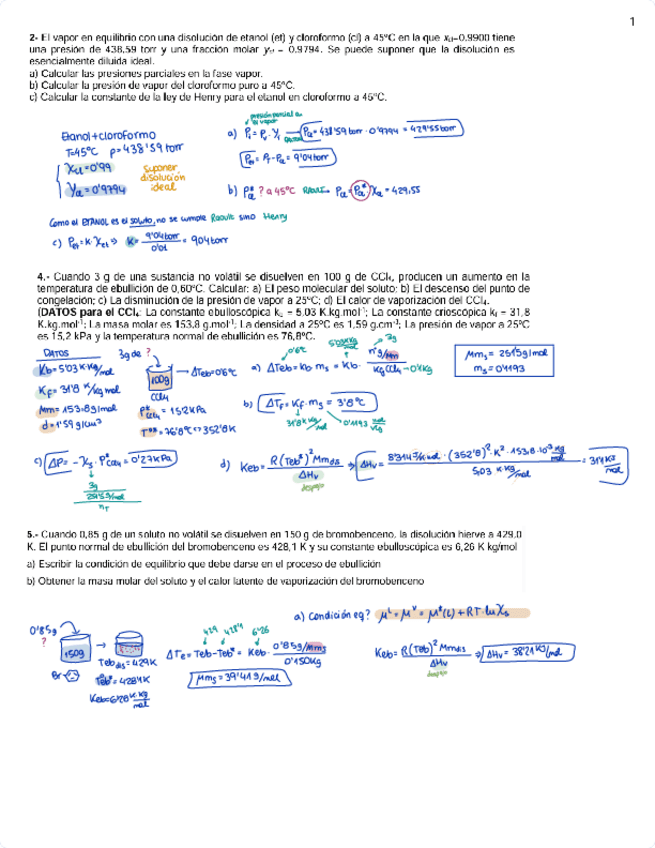 1
2- El vapor en equilibrio con una disolución de etanol (et) y cloroformo (cl) a 45°C en la que xcl=0.9900 tiene
una presión de 438,59 torr y una fracción molar ycl = 0.9794. Se puede suponer que la disolución es
esencialmente diluida ideal.
a) Calcular las presiones parciales en la fase vapor.
b) Calcular la presión de vapor del cloroformo puro a 45°C.
c) Calcular la constante de la ley de Henry para el etanol en cloroformo a 45°C.
Etanol+cloroformo
T=45°C p=438'59 torr
Xcl=0'99
Ycl=0'9794
suponer
disolución
ideal
presión parcial en
el vapor
a) Pi = PT · Yi → Pcl = 438'59 torr · 0'9794 = 429'55 torr
Pet = PT - Pcl = 9'04 torr
b) P*cl ? a 45°C Raoult: Pcl = P*cl Xcl = 429,55
Como el ETANOL es el soluto, no se cumple Raoult sino Henry
c) Pet = K · Xet ⇒ K = 9'04 torr / 0'01 = 904 torr
4.- Cuando 3 g de una sustancia no volátil se disuelven en 100 g de CCl₄, producen un aumento en la
temperatura de ebullición de 0,60°C. Calcular: a) El peso molecular del soluto; b) El descenso del punto de
congelación; c) La disminución de la presión de vapor a 25°C; d) El calor de vaporización del CCl₄.
(DATOS para el CCl₄: La constante ebulloscópica kb = 5,03 K.kg.mol⁻¹; La constante crioscópica kf = 31,8
K.kg.mol⁻¹; La masa molar es 153,8 g.mol⁻¹; La densidad a 25°C es 1,59 g.cm⁻³; La presión de vapor a 25°C
es 15,2 kPa y la temperatura normal de ebullición es 76,8°C.
DATOS
Kb = 5'03 K·Kg/mol
Kf = 31'8 K/kg mol
Mm = 153'8 g/mol
d = 1'59 g/cm³
3g de ?
100g
CCl4
→ ΔTeb = 0'6°C
P*CCl4 = 15'2 KPa
T*eb = 76'8°C ⇔ 352'8 K
a) ΔTeb = Kb · ms = Kb ·
Mms = 251'5 g/mol
ms = 0'1193
b) ΔTf = Kf · ms = 3'8°C
31'8 K Kg/mol
0'1193 mol/Kg
c) ΔP = - Xs · P*CCl4 = 0'27 KPa
3g
d) Keb = R(Teb*)² Mmdis / ΔHv ⇒ ΔHv = 8'314 J/K·mol · (352'8)² · K² · 153,8·10⁻³ kg/mol / 5,03 K·Kg/mol = 31'4 KJ/mol
despejo
5.- Cuando 0,85 g de un soluto no volátil se disuelven en 150 g de bromobenceno, la disolución hierve a 429,0
K. El punto normal de ebullición del bromobenceno es 428,1 K y su constante ebulloscópica es 6,26 K kg/mol
a) Escribir la condición de equilibrio que debe darse en el proceso de ebullición
b) Obtener la masa molar del soluto y el calor latente de vaporización del bromobenceno
a) Condición eq? μᴸ = μⱽ = μ*(L) + RT · ln Xs
0'85g
?
150g
Br
Teb dis = 429K
Teb* = 428'1K
Keb = 6'26 K·Kg/mol
429 428'1 6'26
ΔTe = Teb - Teb* = Keb · 0'85g/Mms / 0'150Kg
Mms = 39'41 g/mol
Keb = R(Teb)² Mmdis / ΔHv ⇒ ΔHv = 38'21 KJ/mol
despejo